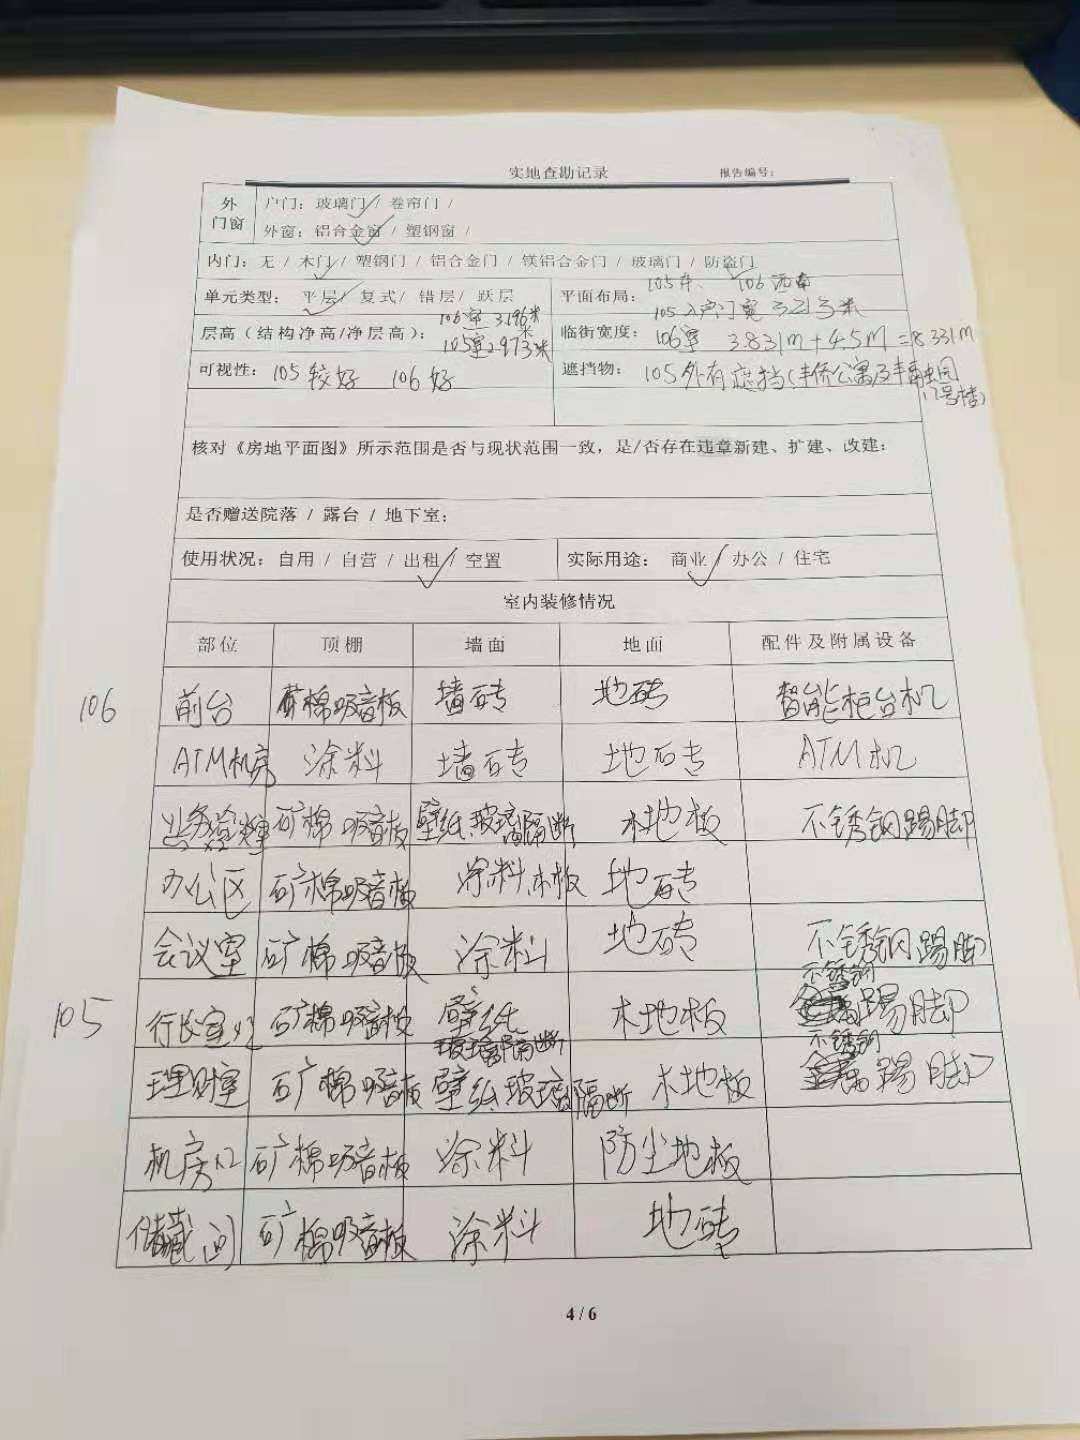 实地查勘记录 报告编号：
外门窗 户门：玻璃门 / 卷帘门 /
外窗：铝合金窗 / 塑钢窗 /
内门：无 / 木门 / 塑钢门 / 铝合金门 / 镁铝合金门 / 玻璃门 / 防盗门
单元类型： 平层 / 复式 / 错层 / 跃层 平面布局： 105东、 106西南
层高（结构净高/净层高）： 106室 3.196米
105室2.973米
105入户门宽 3.213米
临街宽度： 106室 3.831m+4.5m=8.331m
可视性： 105较好 106好 遮挡物： 105外有遮挡(丰侨公寓及丰融园
17号楼)
核对《房地平面图》所示范围是否与现状范围一致，是/否存在违章新建、扩建、改建：
是否赠送院落 / 露台 / 地下室：
使用状况：自用 / 自营 / 出租 / 空置 实际用途： 商业 / 办公 / 住宅
室内装修情况
部位 顶棚 墙面 地面 配件及附属设备
106 前台 矿棉吸音板 墙砖 地砖 智能柜台机
ATM机房 涂料 墙砖 地砖 ATM机
业务 矿棉吸音板 壁纸 玻璃隔断 木地板 不锈钢踢脚
办公区 矿棉吸音板 涂料.木板 地砖
会议室 矿棉吸音板 涂料 地砖 不锈钢踢脚
105 行长室x2 矿棉吸音板 壁纸 玻璃隔断 木地板 不锈钢踢脚
理财室 矿棉吸音板 壁纸 玻璃隔断 木地板 不锈钢踢脚
机房x2 矿棉吸音板 涂料 防尘地板
储藏间 矿棉吸音板 涂料 地砖
4 / 6